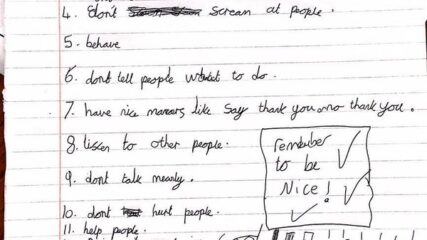 4. dont scream at people.
5. behave
6. dont tell people what to do.
7. have nice manners like say thank you or no thank you.
8. lissen to other people.
9. dont talk meanly.
10. dont hurt people.
11. help people.
remember
to be
Nice!